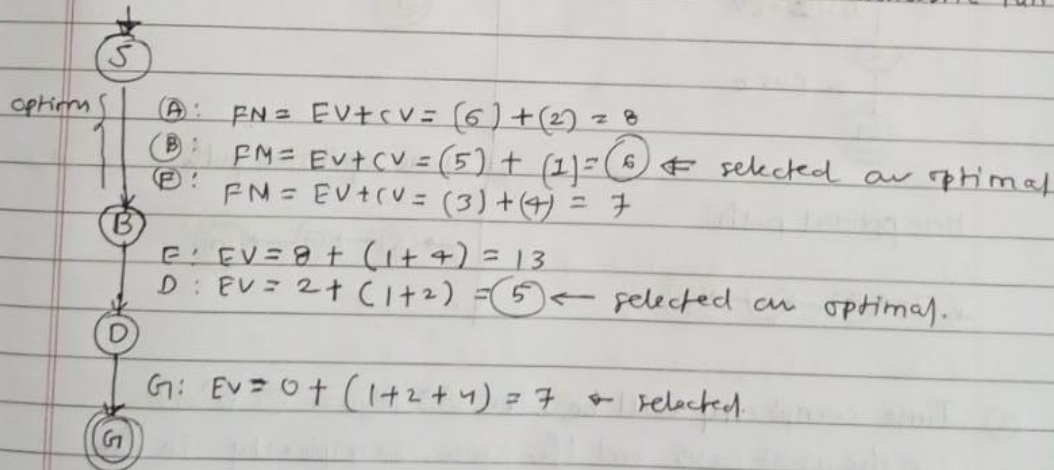 S
options { (A): FN = EV + CV = (6) + (2) = 8
(B): FM = EV + CV = (5) + (1) = (6) ← selected as optimal
(F): FM = EV + CV = (3) + (4) = 7
B
E: EV = 8 + (1 + 4) = 13
D: EV = 2 + (1 + 2) = (5) ← selected as optimal.
D
G: EV = 0 + (1 + 2 + 4) = 7 ← selected.
G